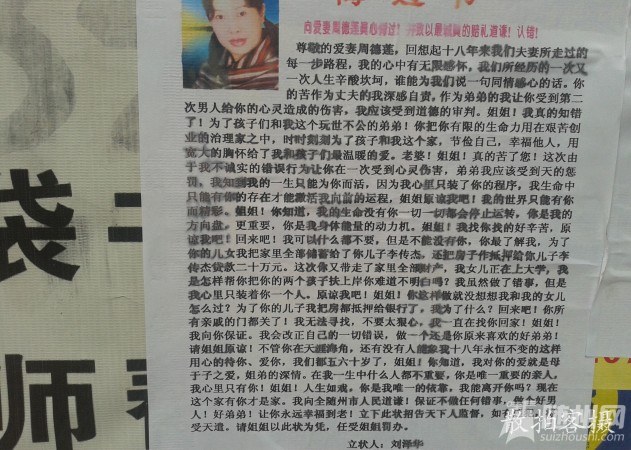 向爱妻周德莲真心悔过！并致以最诚真的赔礼道谦！认错！
尊敬的爱妻周德莲，回想起十八年来我们夫妻所走过的
每一步路程，我的心中有无限感怀，我们所经历的一次又
一次人生辛酸坎坷，谁能为我们说一句同情感心的话。你
的苦作为丈夫的我深感自责，作为弟弟的我让你受到第二
次男人给你的心灵造成的伤害，我应该受到道德的审判。姐姐！我真的知错
了！为了孩子们和我这个玩世不公的弟弟！你把你有限的生命力用在艰苦创
业的治理家之中，时时刻刻为了孩子和我这个家，节俭自己，幸福他人，用
宽大的胸怀给了我和孩子们最温暖的爱。老婆！姐姐！真的苦了您！这次由
于我不诚实的错误行为让你在一次受到心灵伤害，弟弟我应该受到天的惩
罚、我知到我的一生只能为你而活，因为我心里只装了你的程序，我生命中
只能有你的存在才能激活我向前的运程，姐姐原谅我吧！我的世界只能有你
而精彩。姐姐！你知道，我的生命没有你一切一切都会停止运转，你是我的
方向盘，更重要，你是我身体能量的动力机。姐姐！我找你找的好辛苦，原
谅我吧！回来吧！我可以什么都不要，但是不能没有你，你最了解我，为了
你的儿女我把家里全部储蓄给了你儿子李传杰，还把房子作抵押给你儿子李
传杰贷款二十万元。这次你又带走了家里全部财产，我女儿正在上大学，我
是怎样帮你把你的两个孩子扶上岸你难道不明白吗？我虽然做了错事，但是
我心里只装着你一个人。原谅我吧！姐姐！你这样做就没想想我和我的女儿
怎么过？为了你的儿子我把房都抵押给银行了，我为了什么？回来吧！你所
有亲戚的门都关了！我无法寻找，不要太狠心，我一直在找你回家！姐姐！
我向你保证。我会改正自己的一切错误，做一个还是你原来喜欢的好弟弟！
请姐姐原谅！不管你在天涯海角，还有没有人能象我十八年永恒不变的这样
用心的待你、爱你，我们都五六十岁了，姐姐！你知道，我对你的爱就是母
于子之爱，姐弟的深情。在我一生中什么人都不重要，你是唯一重要的亲人。
我心里只有你！姐姐！人生如戏，你是我唯一的依靠，我能离开你吗？现在
这个家有你才是家。我向全随州市人民道谦！保证不做任何错事，做个好男
人！好弟弟！让你永远幸福到老！立下此状招告天下人监督，如有
受天遣。请姐姐以此状为凭，任受姐姐罚办。
立状人：刘泽华
袋
师
随拍客摄
suizhoushi.com